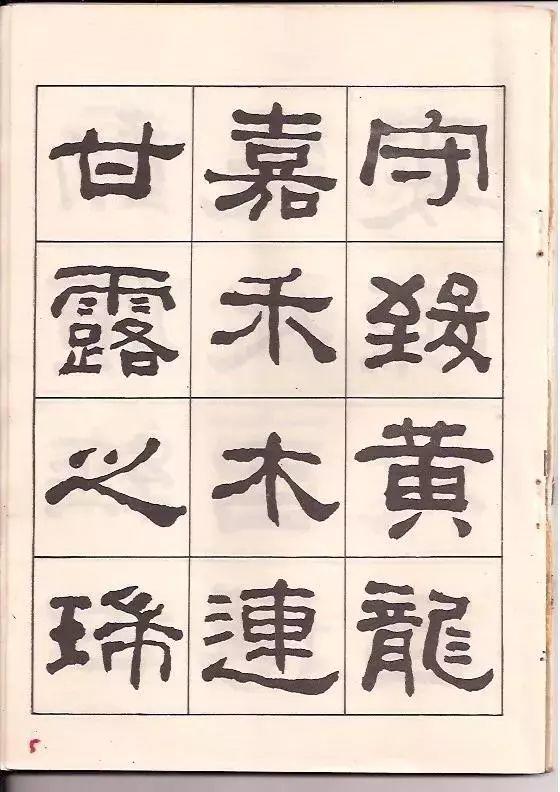 守致黄龍
嘉禾木連
甘露之瑞
5